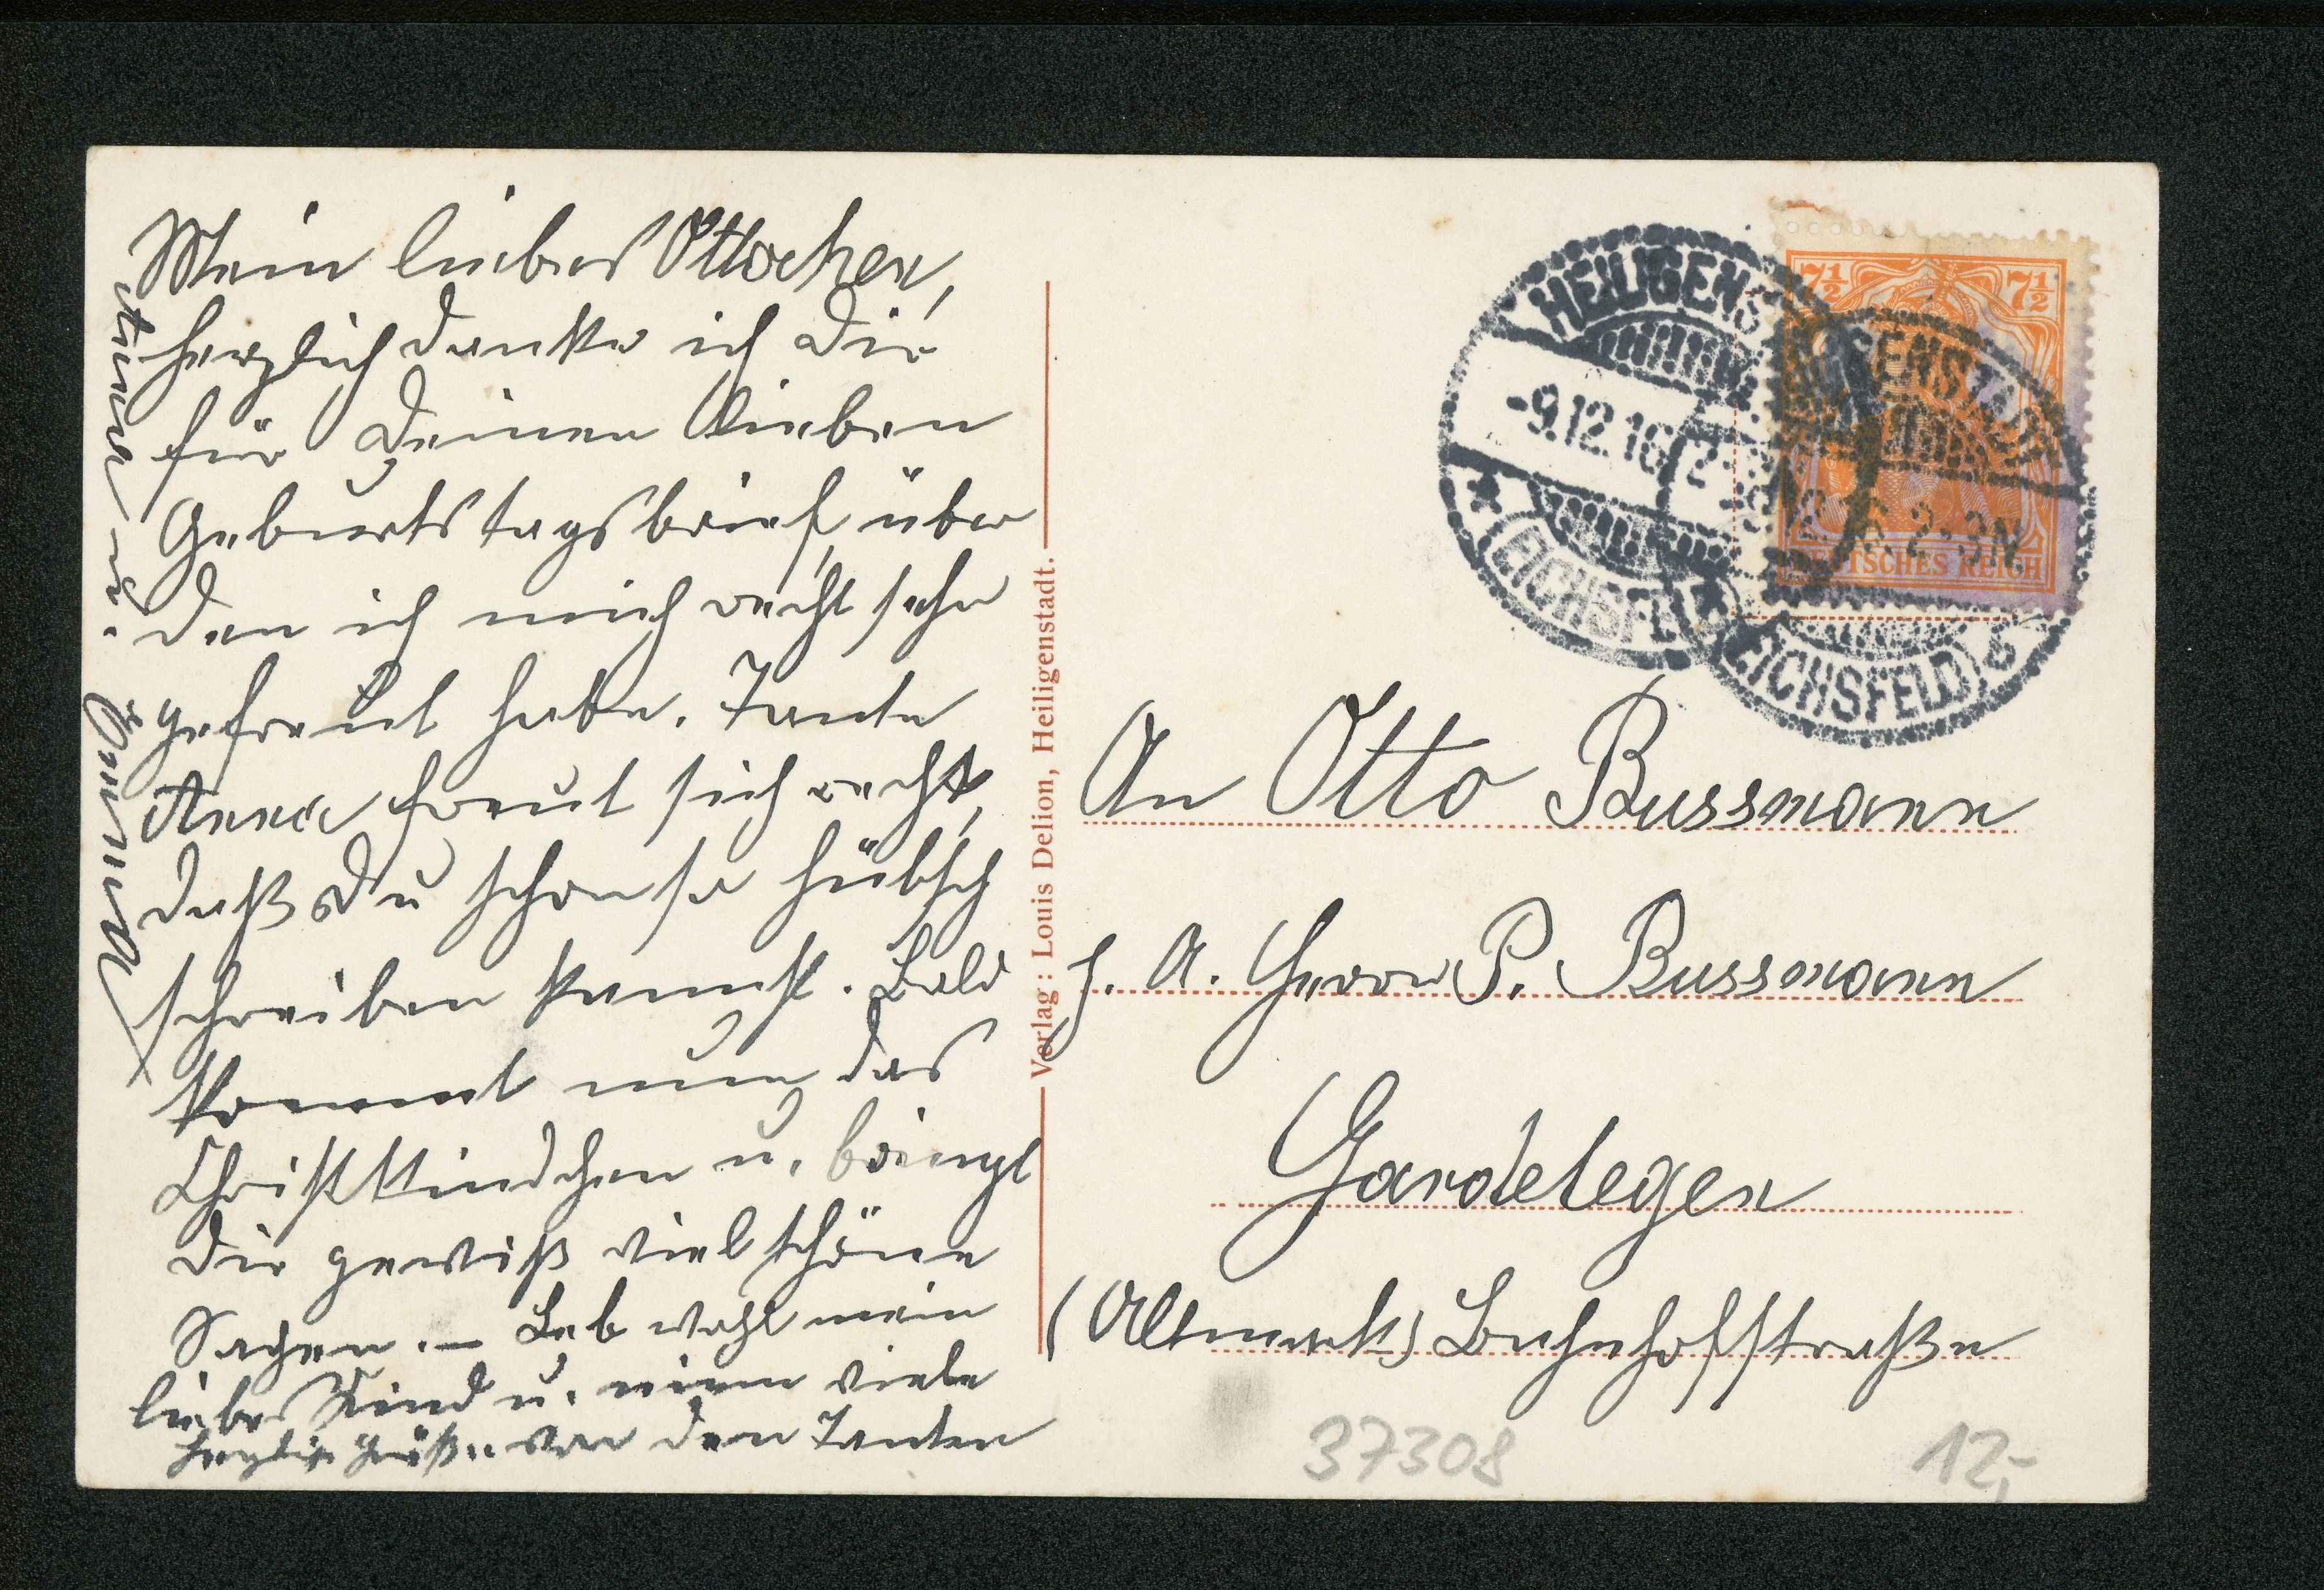 Mein liebes Ottochen,
herzlich danke ich Dir
für Deinen lieben
Geburtstagsbrief, über
den ich mich recht sehr
gefreut habe. Tante
Anna freut sich recht,
daß Du schon so hübsch
schreiben kannst. Bald
kommt nun das
Christkindchen u. bringt
Dir gewiß viel schöne
Sachen. — Leb wohl mein
liebes Kind u. nimm viele
herzliche Grüße von den Tanten
Anna u.
Emma
Verlag: Louis Delion, Heiligenstadt.
HEILIGENSTADT
-9.12.16 2-3N
(EICHSFELD)
7½ 7½
DEUTSCHES REICH
HEILIGENSTADT
2-3N
(EICHSFELD) b
An Otto Bussmann
p. A. Herrn P. Bussmann
Gardelegen
(Altmark) Bahnhofstraße
37308
12,-